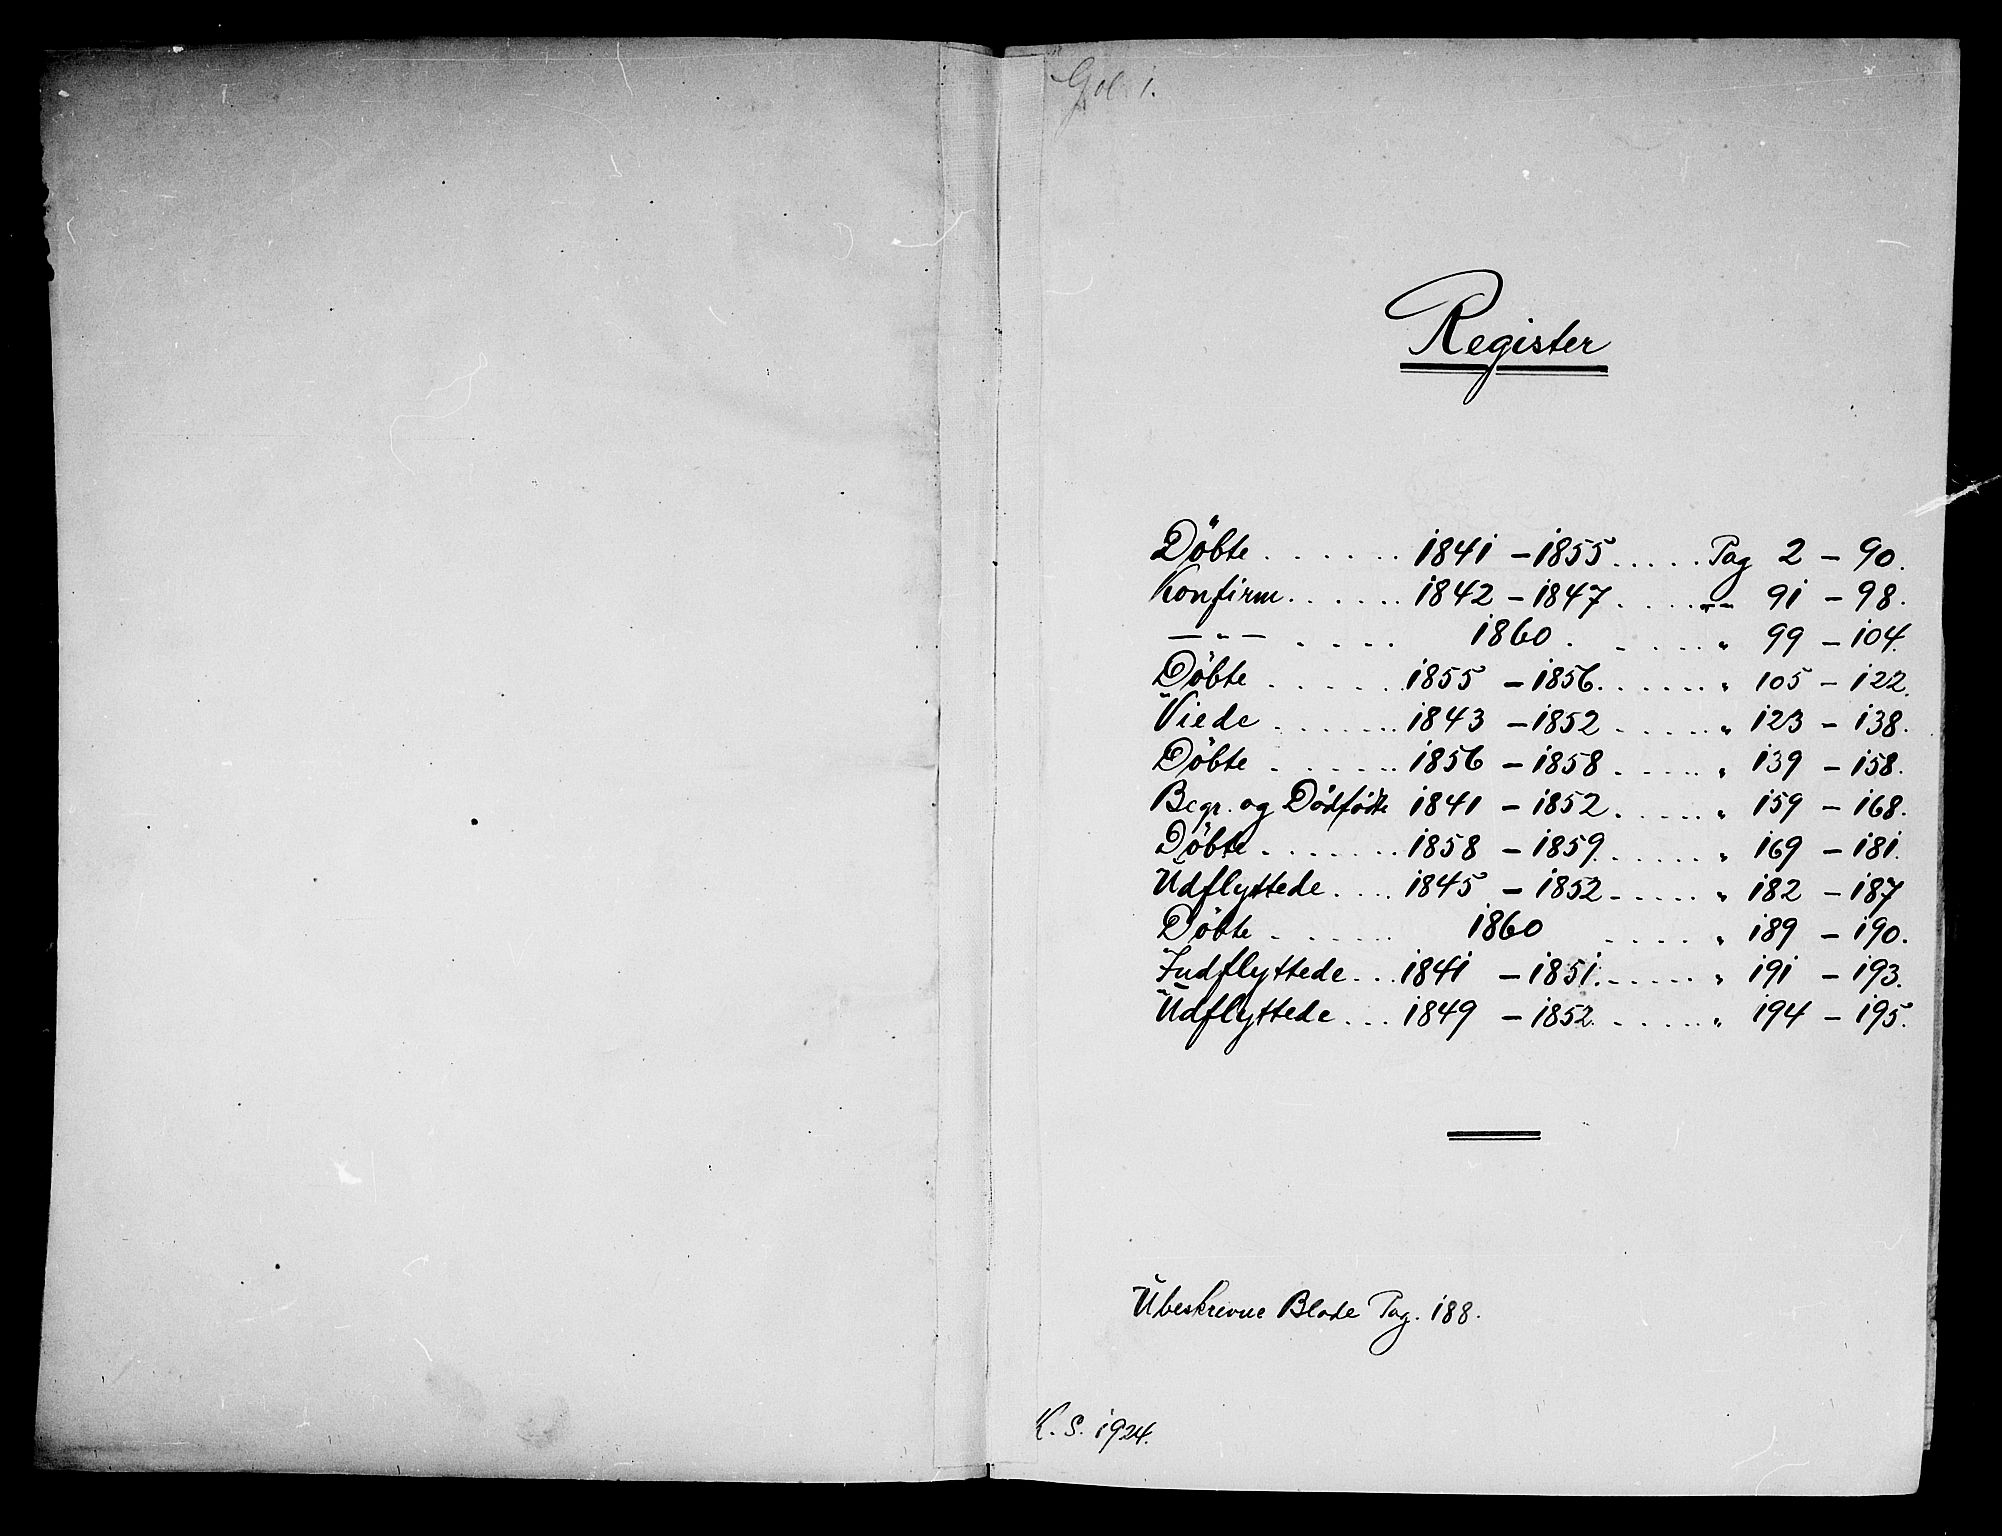 Gol 1.
Register
Döbte . . . . . . 1841 – 1855 . . . . . Pag 2 – 90.
Konfirm . . . . . . 1842 – 1847 . . . . –"– 91 – 98.
–"– . . . . 1860 . . . . . " 99 – 104.
Döbte . . . . . . 1855 – 1856 . . . . . . " 105 – 122.
Viede . . . . . . 1843 – 1852 . . . . . " 123 – 138.
Döbte . . . . . . 1856 – 1858 . . . . . " 139 – 158.
Begr. og Dödfödte 1841 – 1852 . . . . . " 159 – 168.
Döbte . . . . . . . 1858 – 1859 . . . . . . " 169 – 181.
Udflyttede . . . . 1845 – 1852 . . . . . " 182 – 187
Döbte . . . . . . 1860 . . . . . " 189 – 190.
Indflyttede . . . 1841 – 1851 . . . . . . " 191 – 193.
Udflyttede . . . 1849 – 1852 . . . . . " 194 – 195.
Ubeskrevne Blade Pag. 188.
K. S. 1924.